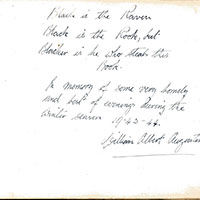 Black is the Raven
Black is the Rook, but
Blacker is he who steals this
Book.
In memory of some very lovely
and best of evenings during the
winter season 1943-44.
William Albert Augustus